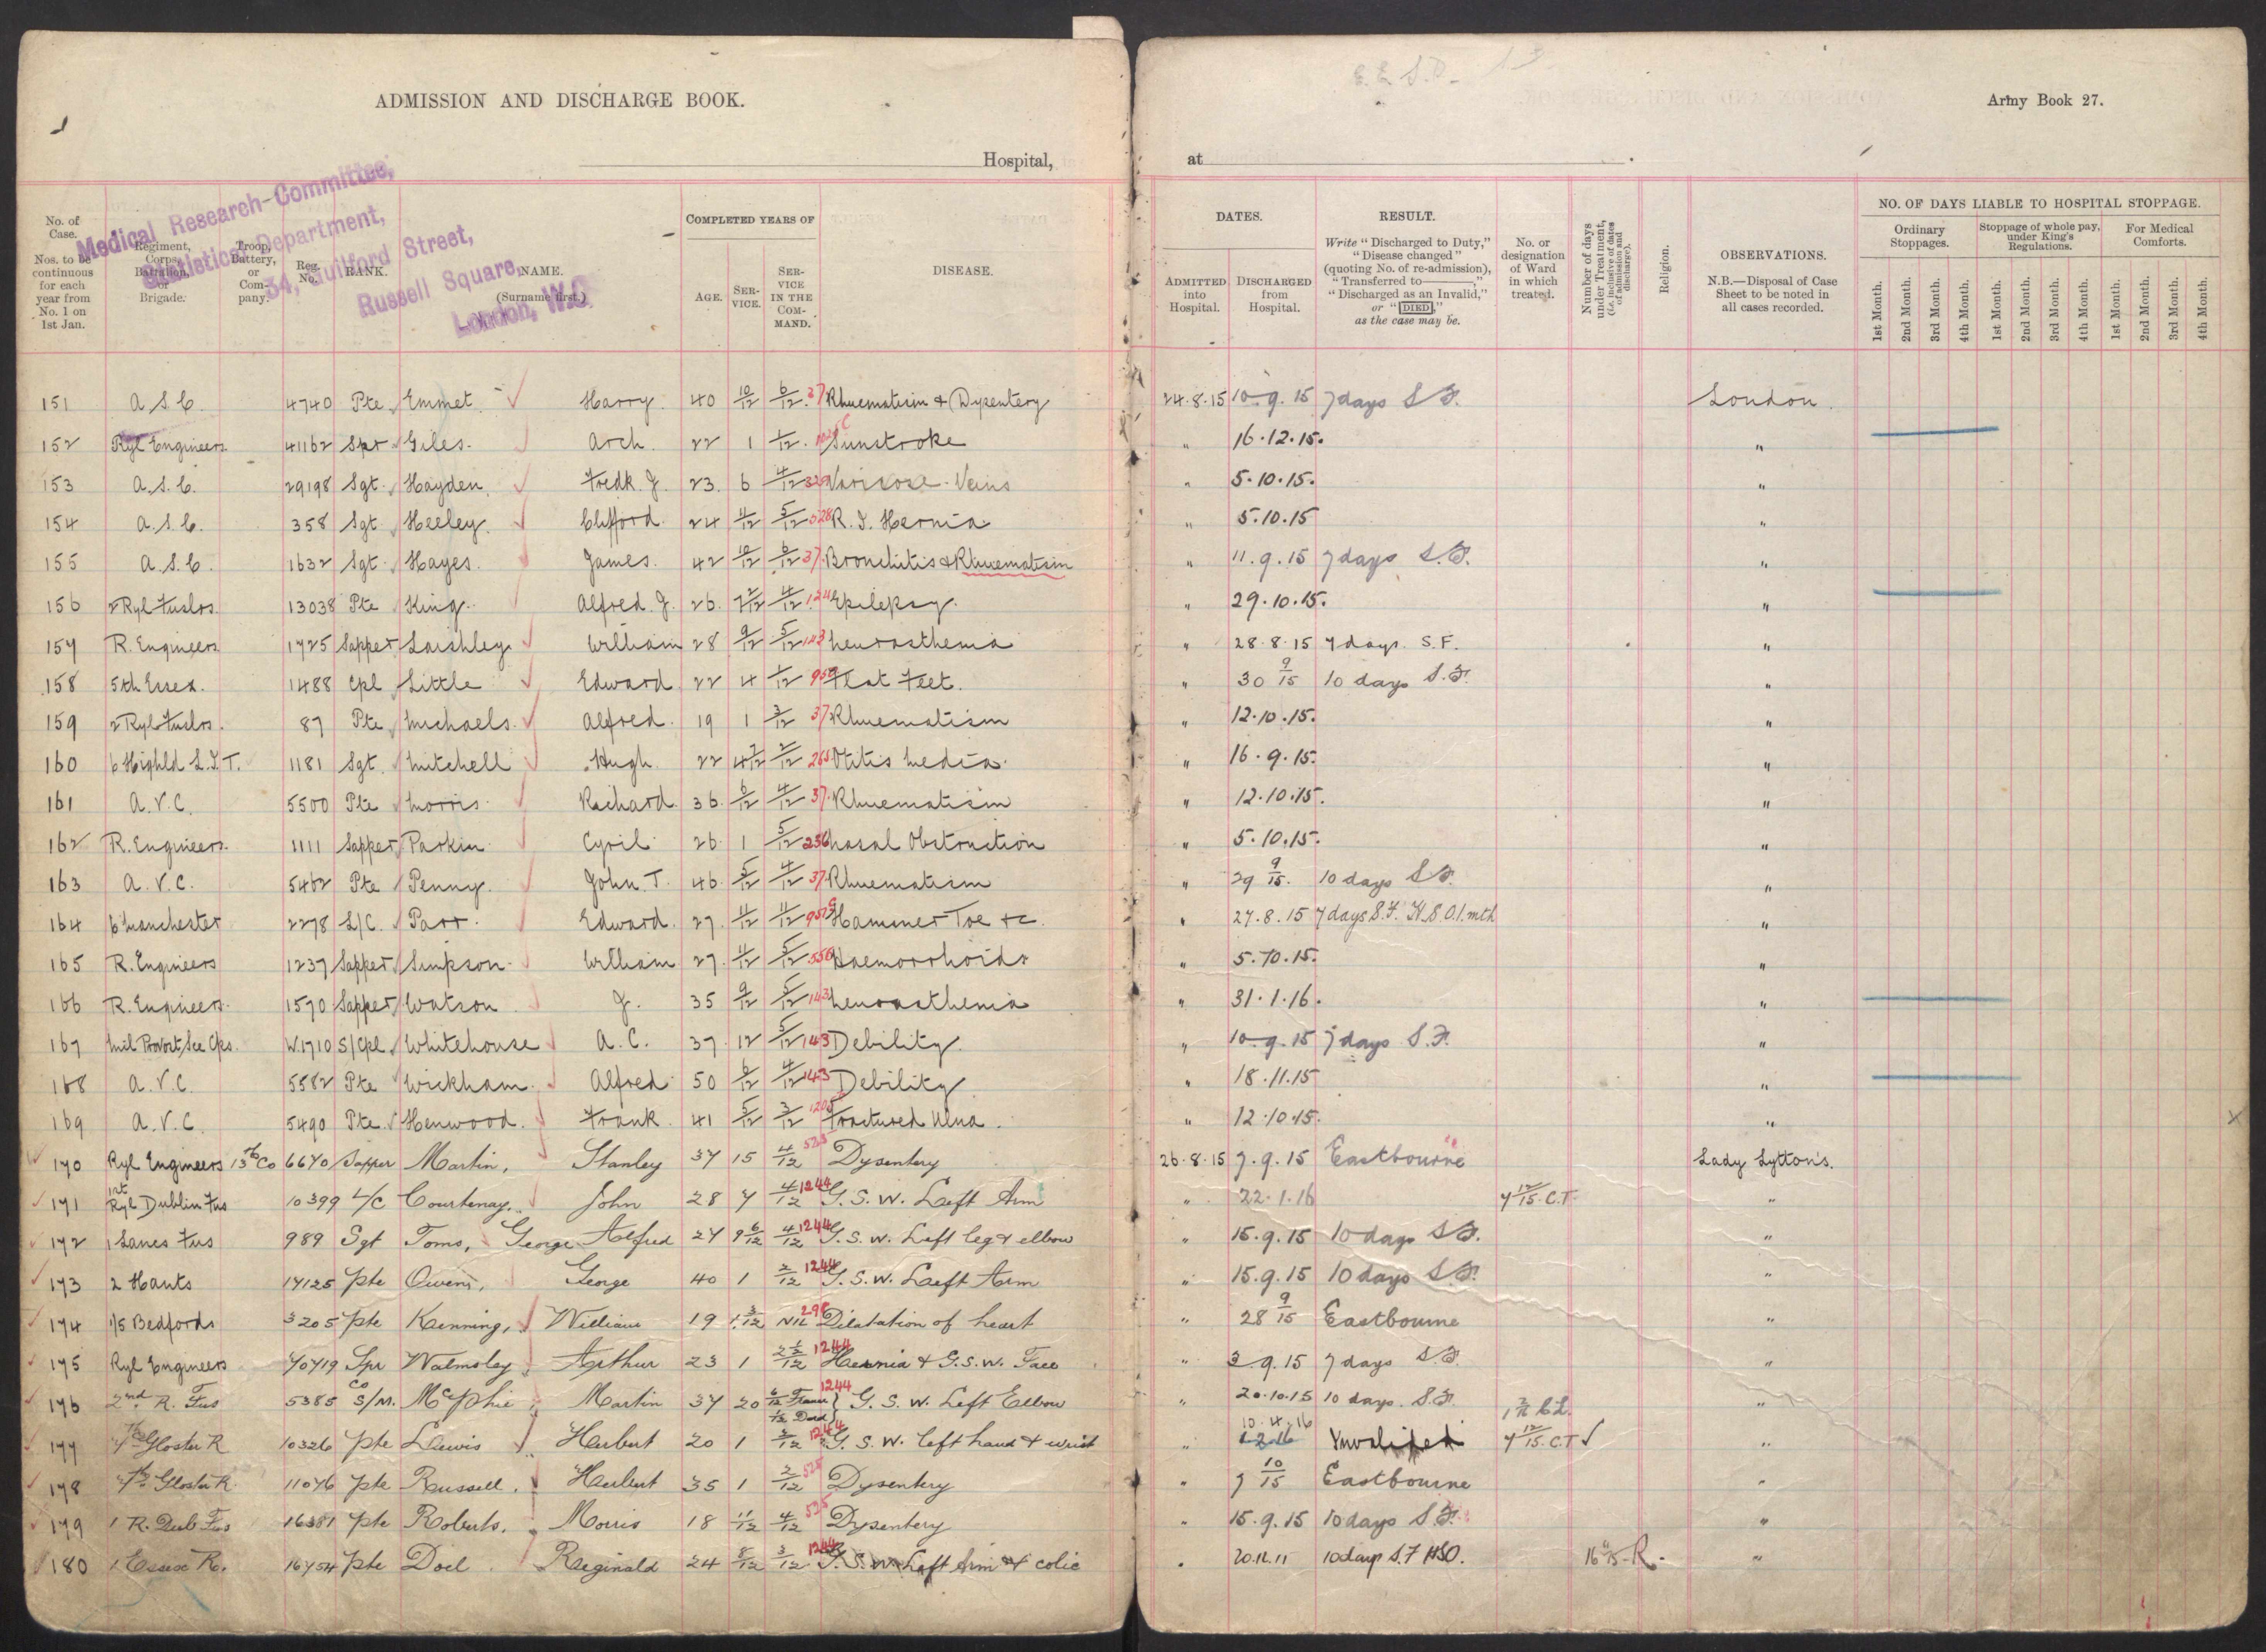 E. E. S. D.
ADMISSION AND DISCHARGE BOOK.
Army Book 27.
Hospital, at
Medical Research-Committee,
Statistical Department,
34, Guilford Street,
Russell Square,
London, W.C.
No. of Case. Nos. to be continuous for each year from No. 1 on 1st Jan.
Regiment, Corps, Battalion, or Brigade.
Troop, Battery, or Company.
Reg. No.
RANK.
NAME. (Surname first.)
COMPLETED YEARS OF
AGE.
SERVICE.
SERVICE IN THE COMMAND.
DISEASE.
DATES.
ADMITTED into Hospital.
DISCHARGED from Hospital.
RESULT.
Write "Discharged to Duty," "Disease changed" (quoting No. of re-admission), "Transferred to ———," "Discharged as an Invalid," or "DIED," as the case may be.
No. or designation of Ward in which treated.
Number of days under Treatment, (i.e. inclusive of dates of admission and discharge).
Religion.
OBSERVATIONS.
N.B.—Disposal of Case Sheet to be noted in all cases recorded.
NO. OF DAYS LIABLE TO HOSPITAL STOPPAGE.
Ordinary Stoppages.
Stoppage of whole pay, under King's Regulations.
For Medical Comforts.
1st Month. 2nd Month. 3rd Month. 4th Month. 1st Month. 2nd Month. 3rd Month. 4th Month. 1st Month. 2nd Month. 3rd Month. 4th Month.
151 A.S.C. 4740 Pte Emmet Harry 40 10/12 6/12 37 Rhuematism & Dysentery 24.8.15 10.9.15 7 days S.F. London
152 Ryl Engineers 41162 Spr Giles Arch 22 1 1/12 Sunstroke " 16.12.15 "
153 A.S.C. 29198 Sgt Hayden Fredk. J. 23 6 4/12 329 Varicose Veins " 5.10.15 "
154 A.S.C. 358 Sgt Heeley Clifford 24 11/12 5/12 528 R. I. Hernia " 5.10.15 "
155 A.S.C. 1632 Sgt Hayes James 42 10/12 6/12 37 Bronchitis & Rhuematism " 11.9.15 7 days S.F. "
156 2 Ryl Fuslrs. 13038 Pte King Alfred J. 26 7 2/12 4/12 124 Epilepsy " 29.10.15 "
157 R. Engineers 1725 Sapper Laishley William 28 9/12 5/12 143 Neurasthenia " 28.8.15 7 days S.F. "
158 5th Essex 1488 Cpl Little Edward 22 4 1/12 959 Flat Feet " 30 9/15 10 days S.F. "
159 2 Ryl Fuslrs. 87 Pte Michaels Alfred 19 1 3/12 37 Rhuematism " 12.10.15 "
160 6 Highld L.I.T. 1181 Sgt Mitchell Hugh 22 4 7/12 2/12 265 Otitis Media " 16.9.15 "
161 A.V.C. 5500 Pte Morris Richard 36 6/12 4/12 37 Rhuematism " 12.10.15 "
162 R. Engineers 1111 Sapper Parkin Cyril 26 1 5/12 236 Nasal Obstruction " 5.10.15 "
163 A.V.C. 5462 Pte Penny John T. 46 5/12 4/12 37 Rhuematism " 29 9/15 10 days S.F. "
164 6 Manchester 2278 L/C. Parr Edward 27 11/12 11/12 957 Hammer Toe &c " 27.8.15 7 days S.F. H.S.O. 1. mth "
165 R. Engineers 1237 Sapper Simpson William 27 11/12 5/12 556 Haemorrhoids " 5.10.15 "
166 R. Engineers 1570 Sapper Watson J. 35 9/12 5/12 143 Neurasthenia " 31.1.16 "
167 Mil Provost See Cps. W.1710 S/Cpl Whitehouse A.C. 37 12 5/12 143 Debility " 10.9.15 7 days S.F. "
168 A.V.C. 5582 Pte Wickham Alfred 50 6/12 4/12 143 Debility " 18.11.15 "
169 A.V.C. 5490 Pte Henwood Frank 41 5/12 3/12 1205 Fractured Ulna " 12.10.15 "
170 Ryl Engineers 13th Co 6670 Sapper Martin, Stanley 37 15 4/12 525 Dysentery 26.8.15 7.9.15 Eastbourne Lady Lytton's.
171 1st Ryl Dublin Fus 10399 L/C Courtenay, John 28 7 4/12 1244 G.S.W. Left Arm " 22.1.16 7 12/15 C.T. "
172 1 Lancs Fus 989 Sgt Toms, George Alfred 27 9 6/12 4/12 1244 G.S.W. Left leg & elbow " 15.9.15 10 days S.F. "
173 2 Hants 14125 Pte Owens, George 40 1 2/12 1244 G.S.W. Left Arm " 15.9.15 10 days S.F. "
174 1/5 Bedfords 3205 Pte Kenning, William 19 1 3/12 NIL 298 Dilatation of heart " 28 9/15 Eastbourne "
175 Ryl Engineers 70719 Spr Walmsley, Arthur 23 1 1244 Hernia & G.S.W. Face " 3.9.15 7 days S.F. "
176 2nd R. Fus 5385 Co S/M. McPhie Martin 37 20 6/12 France 1/12 Dard 1244 G.S.W. Left Elbow " 20.10.15 10 days S.F. "
177 7th Gloster R 10326 Pte Lewis Herbert 20 1 2/12 1244 G.S.W. left hand & wrist " 10.4.16 Invalided 7 12/15 C.T "
178 7th Gloster R 11076 Pte Russell, Herbert 35 1 2/12 525 Dysentery " 7 10/15 Eastbourne "
179 1 R. Dub Fus 16381 Pte Roberts, Morris 18 11/12 4/12 525 Dysentery " 15.9.15 10 days S.F. "
180 1 Essex R. 16754 Pte Doel Reginald 24 8/12 3/12 1244 G.S.W. Left Arm & colic " 20.11.15 10 days S.F HSO. R. "